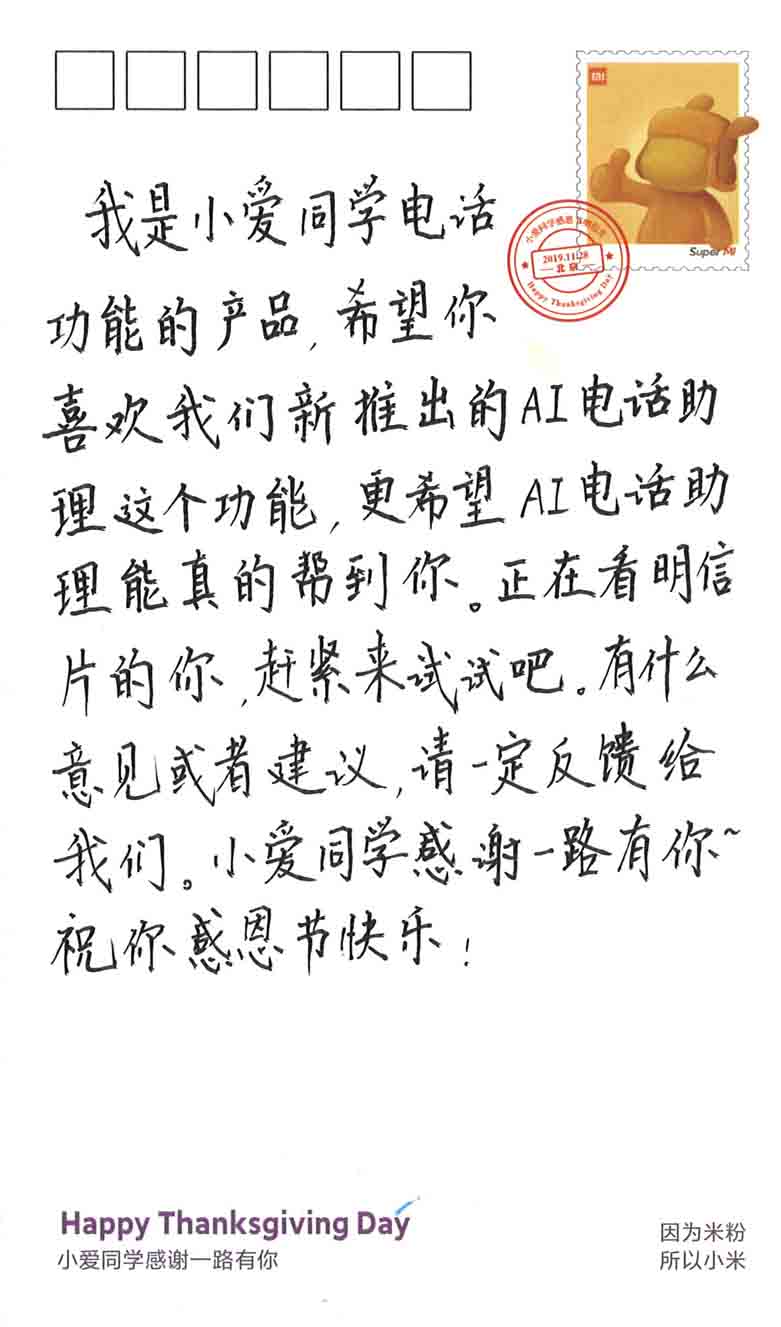 MI
Super MI
2019.11.28
北京
Happy Thanksgiving Day
我是小爱同学电话
功能的产品,希望你
喜欢我们新推出的AI电话助
理这个功能,更希望AI电话助
理能真的帮到你。正在看明信
片的你,赶紧来试试吧。有什么
意见或者建议,请一定反馈给
我们。小爱同学感谢一路有你~
祝你感恩节快乐!
Happy Thanksgiving Day
小爱同学感谢一路有你
因为米粉
所以小米